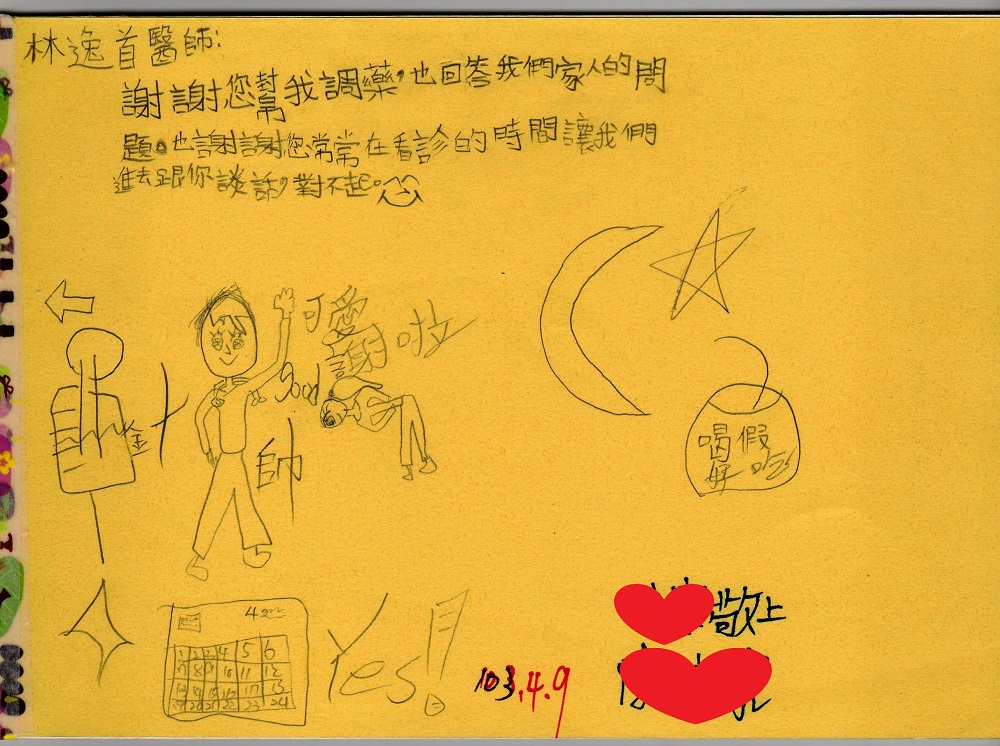 林逸首醫師:
謝謝您幫我調藥,也回答我們家人的問
題。也謝謝您常常在看診的時間讓我們
進去跟你談話,對不起。
可愛
謝啦
Good
針
帥
喝假
好吃
4
1 2 3 4 5 6
Yes!
敬上
103.4.9